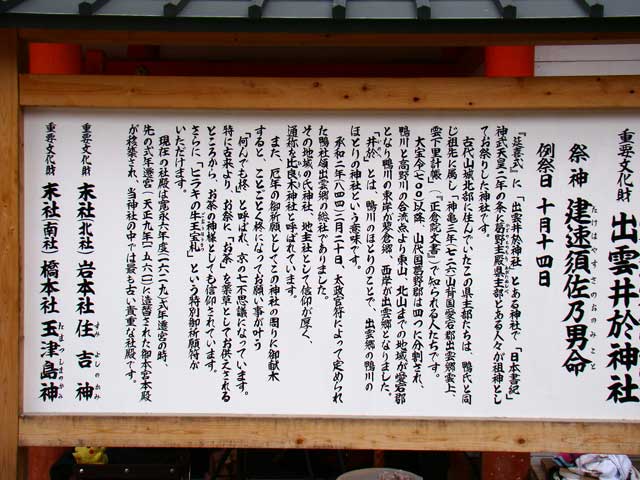 重要文化財
出雲井於神社
祭神 建速須佐乃男命
たけはやすさのおのみこと
例祭日 十月十四日
『延喜式』に「出雲井於神社」とある神社で『日本書紀』
神武天皇二年の条に葛野主殿県主部とある人々が祖神とし
てお祭りした神社です。
古代山城北部に住んでいたこの県主部たちは、鴨氏と同
じ祖先に属し、神亀三年(七二六)山背国愛宕郡出雲郷雲上、
雲下里計帳(『正倉院文書』)で知られる人たちです。
大宝令(七〇〇)以降、山代国葛野郡は四つに分割され、
鴨川と高野川の合流点より東山、北山までの地域が愛宕郡
となり鴨川の東岸が蓼倉郷、西岸が出雲郷となりました。
「井於」とは、鴨川のほとりのことで、出雲郷の鴨川の
ほとりの神社という意味です。
承和二年(八四四)二月二十日、太政官符によって定められ
た鴨社領出雲郷の総社でありました。
その地域の氏神社、地主社として信仰が厚く、
通称を比良木神社と呼ばれています。
また、厄年の御祈願としてこの神社の周りに御献木
すると、ことごとく柊になってお願い事が叶う
「何んでも柊」と呼ばれ、京の七不思議になっています。
特に古来より、お祭に「お茶」を薬草としてお供えされる
ところから、お茶の神様としても信仰されています。
さらに「ヒラキの牛王宝札」という特別御祈願符が
いただけます。
現在の社殿は寛永六年度(一六二九)式年遷宮の時、
先の式年遷宮(天正九年(一五八一))に造替された御本宮本殿
が移築され、当神社の中では最も古い貴重な社殿です。
重要文化財
末社(北社) 岩本社 住吉神
すみよしのかみ
重要文化財
末社(南社) 橋本社 玉津島神
たまつしまのかみ